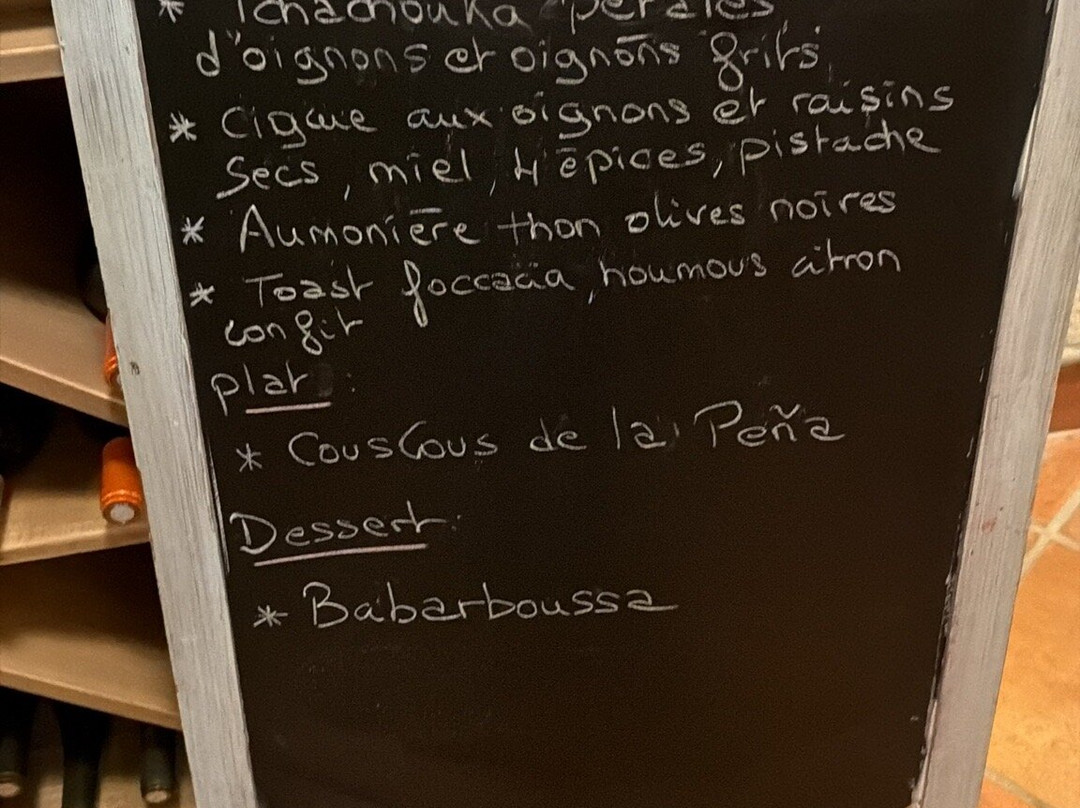 * Tchachouka pétales
d'oignons et oignons frits
* Cigare aux oignons et raisins
secs, miel, 4 épices, pistache
* Aumonière thon olives noires
* Toast foccacia, houmous citron
confit
plat :
* Couscous de la Peña
Dessert :
* Babarboussa